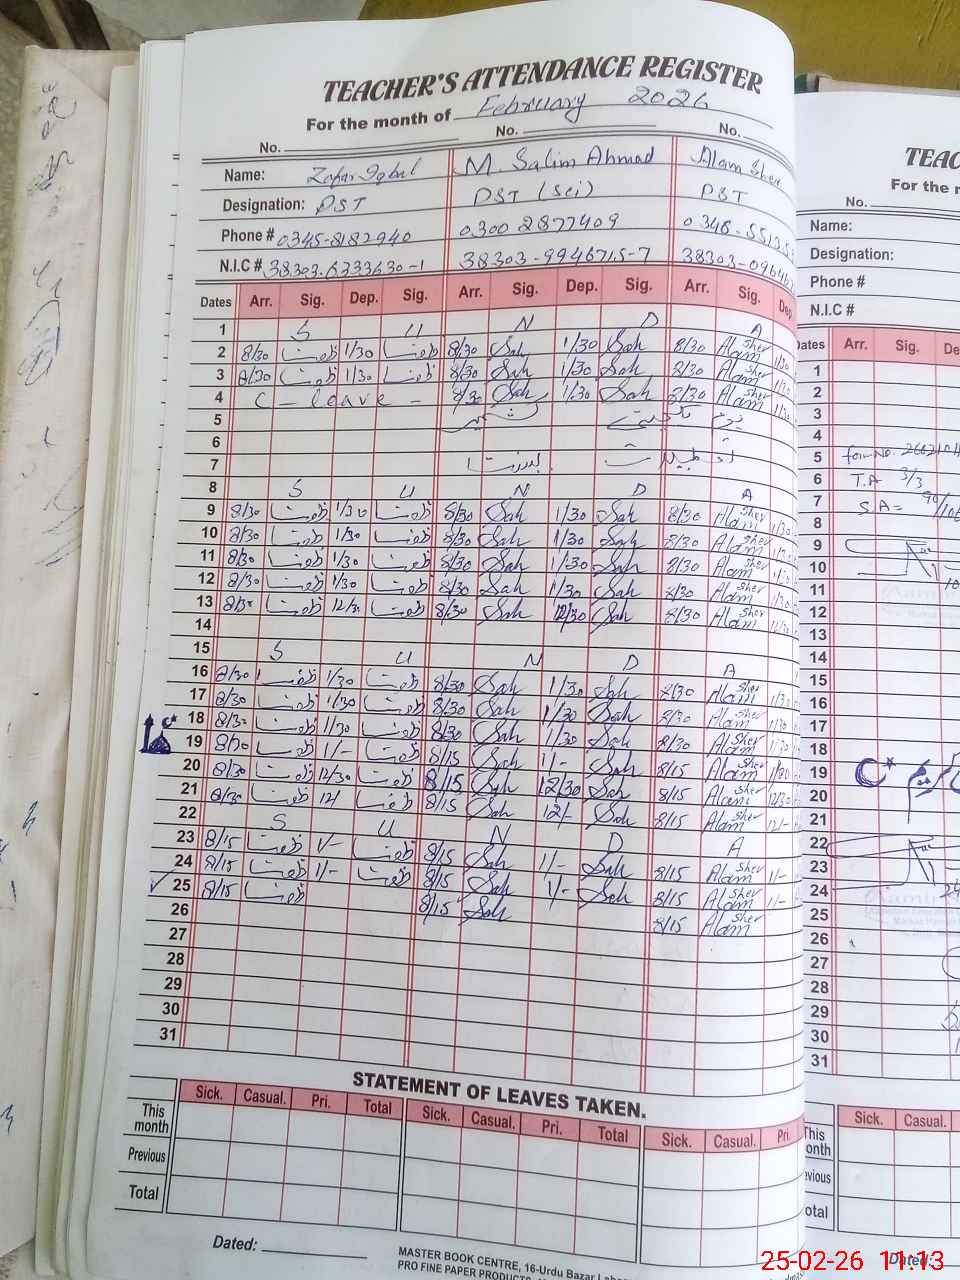 TEACHER'S ATTENDANCE REGISTER
For the month of February 2026
No. No. No.
Name: Zafar Iqbal M. Salim Ahmad Alam Sher
Designation: PST PST (Sci) PST
Phone # 0345-8182940 0300 2877409 0346-5513
N.I.C # 38303-6333630-1 38303-9946715-7 38303-09646
Dates Arr. Sig. Dep. Sig. Arr. Sig. Dep. Sig. Arr. Sig. Dep.
1 S U N D A
2 8/30 ظفر 1/30 ظفر 8/30 Sah 1/30 Sah 8/30 Alam Sher 1/30
3 8/30 ظفر 1/30 ظفر 8/30 Sah 1/30 Sah 8/30 Alam Sher 1/30
4 C - leave - 8/30 Sah 1/30 Sah 8/30 Alam Sher 1/30
5 یوم یکجہتی کشمیر
6
7 بسنت
8 S U N D A
9 8/30 ظفر 1/30 ظفر 8/30 Sah 1/30 Sah 8/30 Alam Sher 1/30
10 8/30 ظفر 1/30 ظفر 8/30 Sah 1/30 Sah 8/30 Alam Sher
11 8/30 ظفر 1/30 ظفر 8/30 Sah 1/30 Sah 8/30 Alam Sher 1/30
12 8/30 ظفر 1/30 ظفر 8/30 Sah 1/30 Sah 8/30 Alam Sher 1/30
13 8/30 ظفر 12/30 ظفر 8/30 Sah 12/30 Sah 8/30 Alam Sher 12/30
14
15 S U N D A
16 8/30 ظفر 1/30 ظفر 8/30 Sah 1/30 Sah 8/30 Alam Sher 1/30
17 8/30 ظفر 1/30 ظفر 8/30 Sah 1/30 Sah 8/30 Alam Sher 1/30
18 8/30 ظفر 1/30 ظفر 8/30 Sah 1/30 Sah 8/30 Alam Sher 1/30
19 8/30 ظفر 1/- ظفر 8/15 Sah 1/- Sah 8/15 Alam Sher
20 8/30 ظفر 12/30 ظفر 8/15 Sah 12/30 Sah 8/15 Alam Sher 12/30
21 8/30 ظفر 12/ ظفر 8/15 Sah 12/- Sah 8/15 Alam Sher 12/-
22 S U N D A
23 8/15 ظفر 1/- ظفر 8/15 Sah 1/- Sah 8/15 Alam Sher 1/-
24 8/15 ظفر 1/- ظفر 8/15 Sah 1/- Sah 8/15 Alam Sher 1/-
25 8/15 ظفر 8/15 Sah 8/15 Alam Sher
26
27
28
29
30
31
STATEMENT OF LEAVES TAKEN.
Sick. Casual. Pri. Total Sick. Casual. Pri. Total Sick. Casual. Pri.
This month
Previous
Total
Dated:
MASTER BOOK CENTRE, 16-Urdu Bazar
PRO FINE PAPER PRODUCTS
TEAC
For the
No.
Name:
Designation:
Phone #
N.I.C #
Dates Arr. Sig. De
1
2
3
4
5
6 T.A 3/3
7 S.A =
8
9
10
11
12
13
14
15
16
17
18
19
20
21
22
23
24
25
26
27
28
29
30
31
Sick. Casual.
This month
Previous
Total
Dated:
25-02-26 11:13